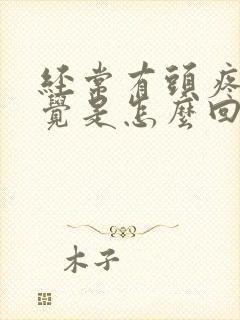 經常有頭疼
覺是怎麼回
木子